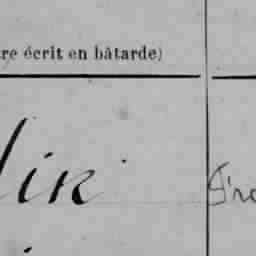 re écrit en bâtarde)
lix Fro